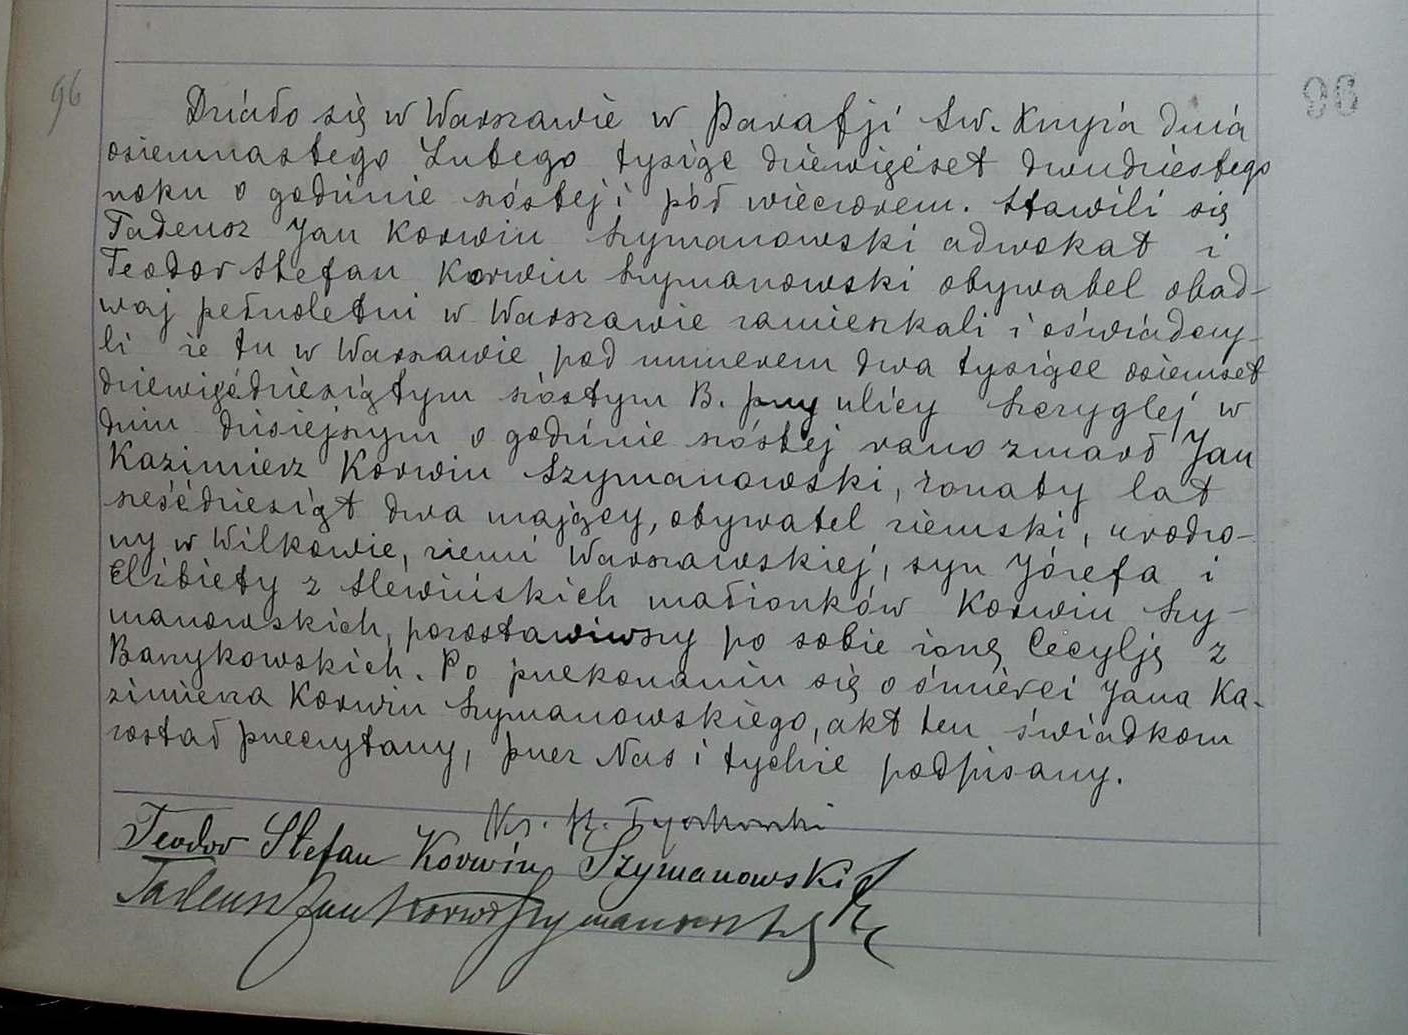 96
96
Działo się w Warszawie w Parafji Św. Krzyża dnia
osiemnastego Lutego tysiąc dziewięćset dwudziestego
roku o godzinie szóstej i pół wieczorem. Stawili się
Tadeusz Jan Korwin Szymanowski adwokat i
Teodor Stefan Korwin Szymanowski obywatel obad-
waj pełnoletni w Warszawie zamieszkali i oświadczy-
li że tu w Warszawie pod numerem dwa tysiące osiemset
dziewięćdziesiątym szóstym B. przy ulicy Szczyglej w
dniu dzisiejszym o godzinie szóstej rano zmarł Jan
Kazimierz Korwin Szymanowski, żonaty lat
sześćdziesiąt dwa mający, obywatel ziemski, urodzo-
ny w Wilkowie, ziemi Warszawskiej, syn Józefa i
Elżbiety z Slewińskich małżonków Korwin Szy-
manowskich, pozostawiwszy po sobie żonę Cecylję z
Barzykowskich. Po przekonaniu się o śmierci Jana Ka-
zimierza Korwin Szymanowskiego, akt ten świadkom
został przeczytany, przez Nas i tychże podpisany.
Ks.
Teodor Stefan Korwin Szymanowski
Tadeusz Jan Korwin Szymanowski